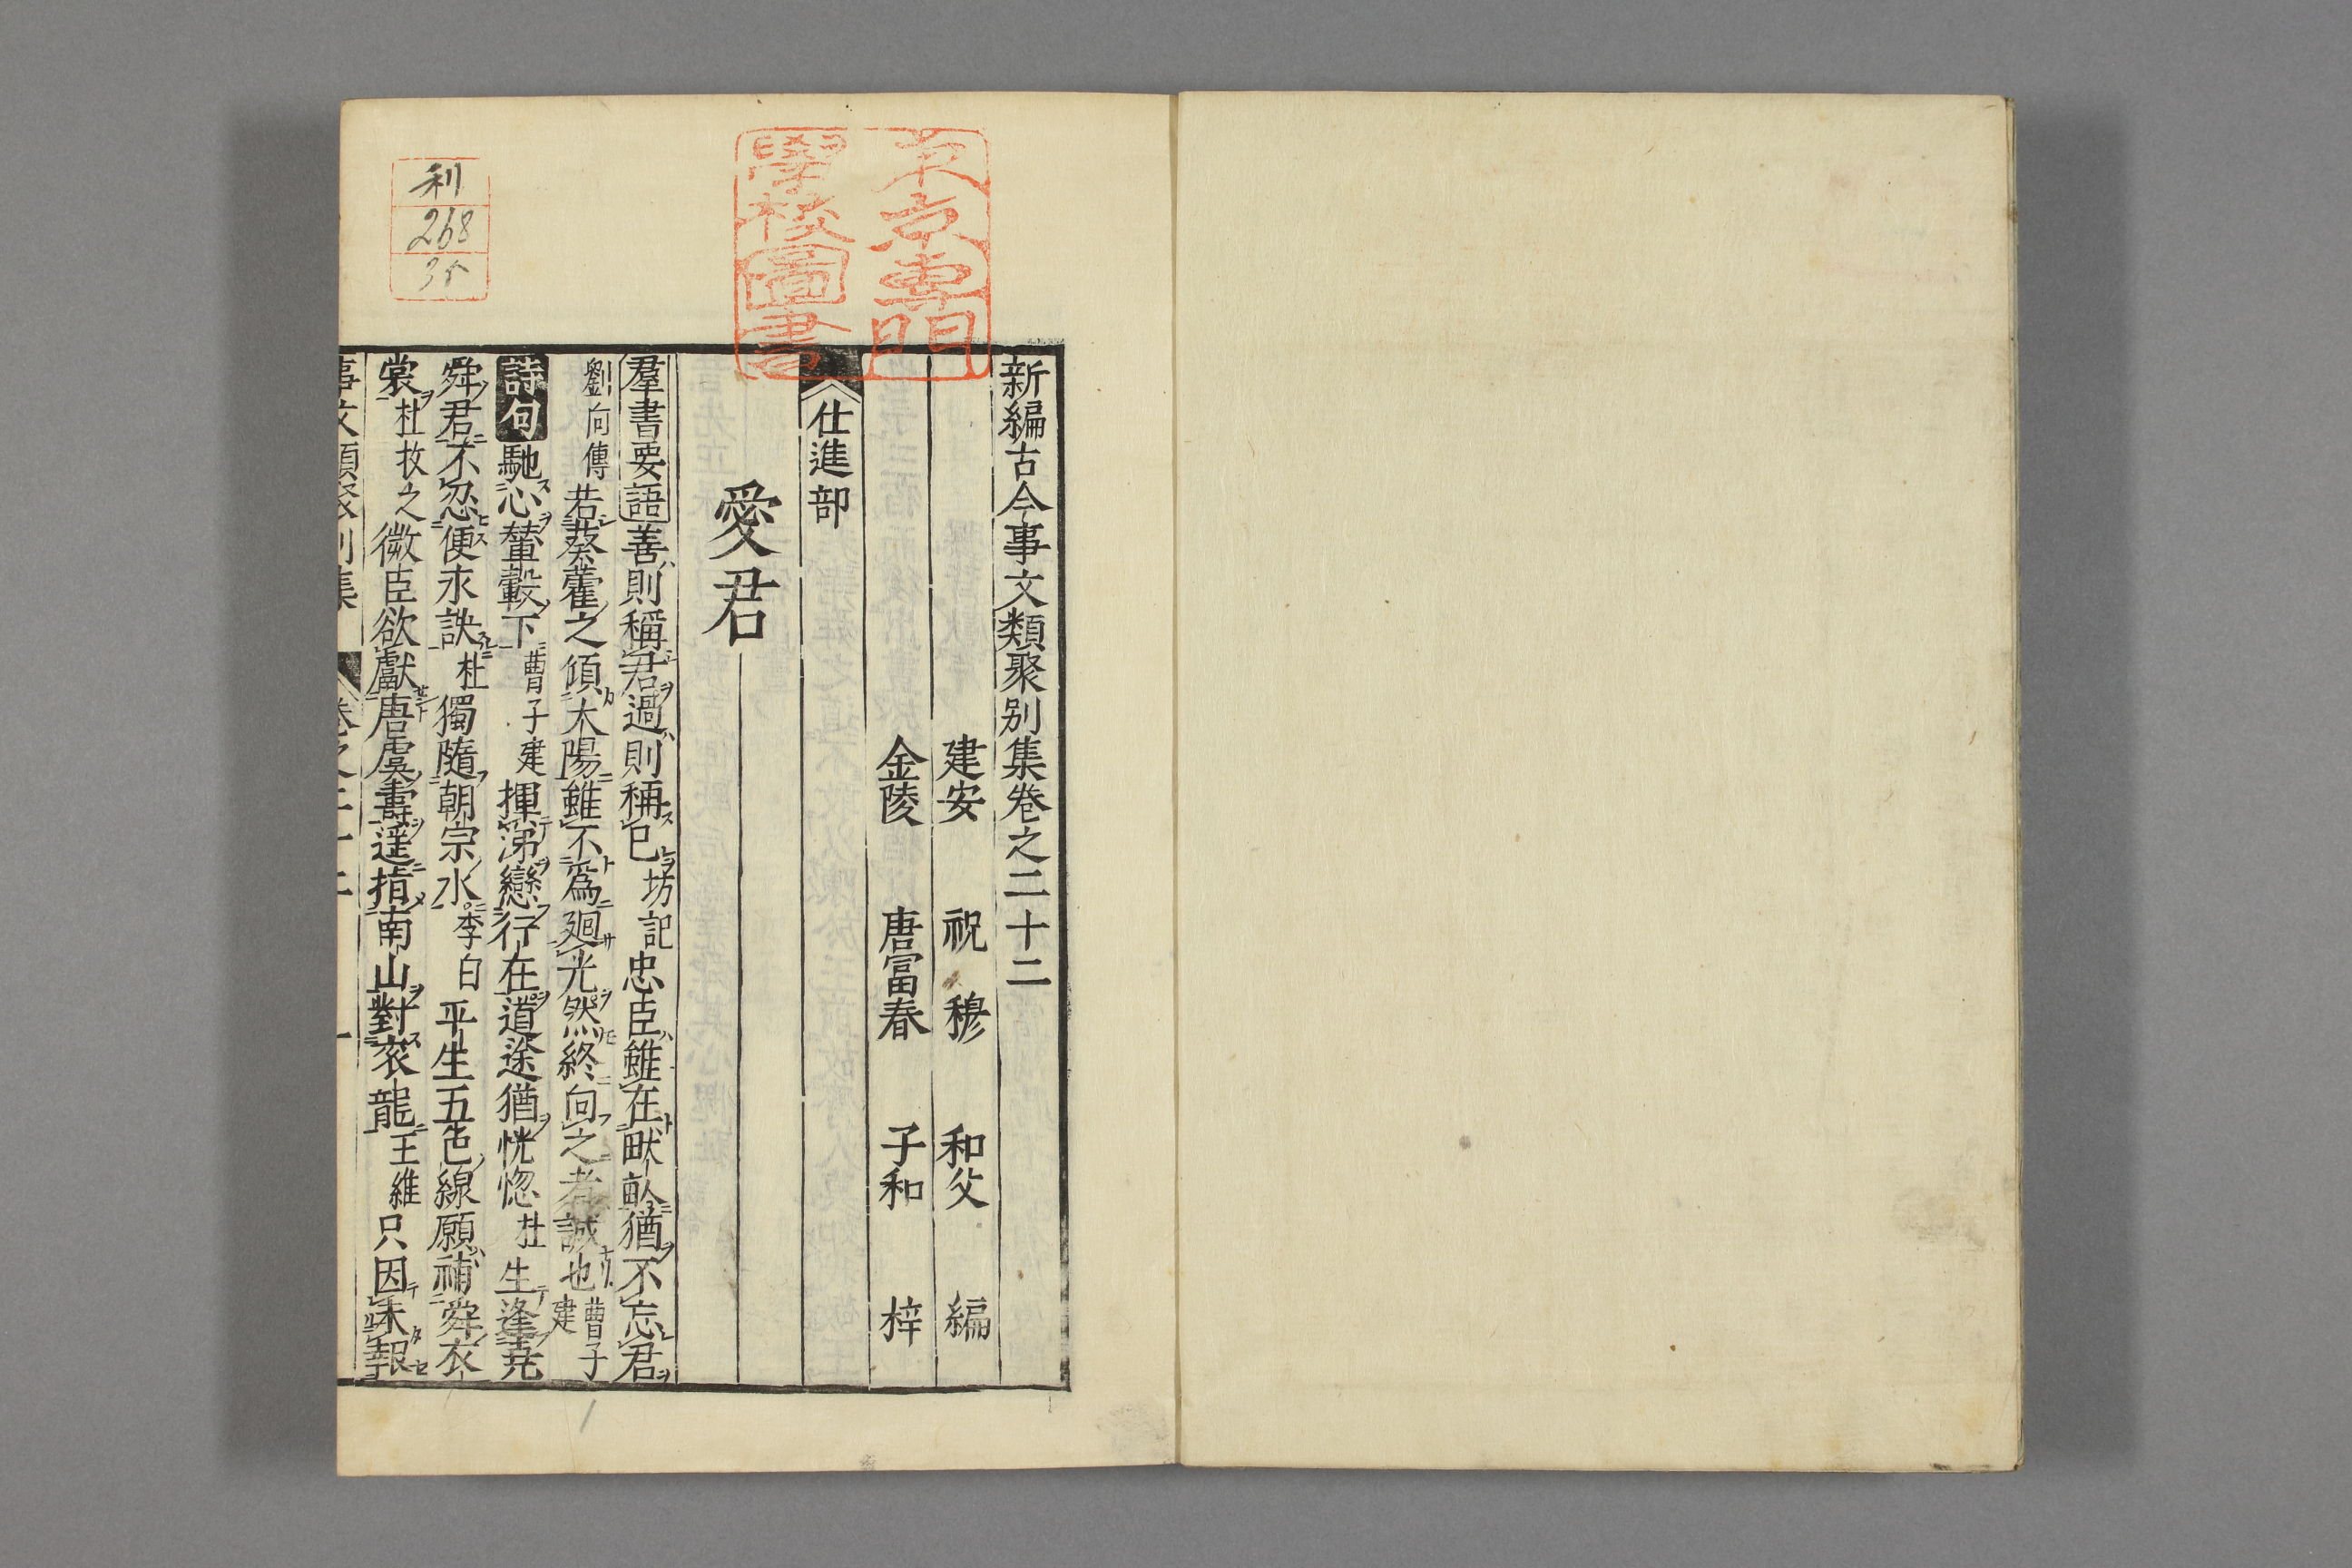 新編古今事文類聚別集卷之二十二
建安　祝　穆　和父　編
金陵　唐富春　子和　梓
仕進部
愛君
羣書要語善則稱君過則稱已坊記忠臣雖在畎畝猶不忘君
劉向傳若葵藿之傾太陽雖不爲廻光然終向之者誠也曹子建
詩句馳心輦轂下曹子建揮涕戀行在道途猶恍惚杜生逢堯
舜君不忍便永訣杜獨隨朝宗水李白平生五色線願補舜衣
裳杜牧之微臣欲獻唐虞壽遥指南山對衮龍王維只因未報
事文類聚別集　卷之二十二　一
東京專門
學校圖書
利
268